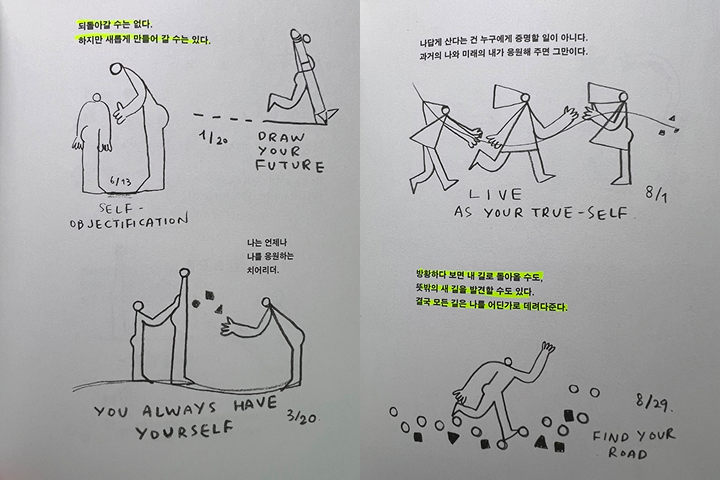 되돌아갈 수는 없다.
하지만 새롭게 만들어 갈 수는 있다.
6/13
SELF-
OBJECTIFICATION
1/20
DRAW
YOUR
FUTURE
나는 언제나
나를 응원하는
치어리더.
YOU ALWAYS HAVE
YOURSELF
3/20.
나답게 산다는 건 누구에게 증명할 일이 아니다.
과거의 나와 미래의 내가 응원해 주면 그만이다.
LIVE
AS YOUR TRUE-SELF.
8/1
방황하다 보면 내 길로 돌아올 수도,
뜻밖의 새 길을 발견할 수도 있다.
결국 모든 길은 나를 어딘가로 데려다준다.
8/29.
FIND YOUR
ROAD